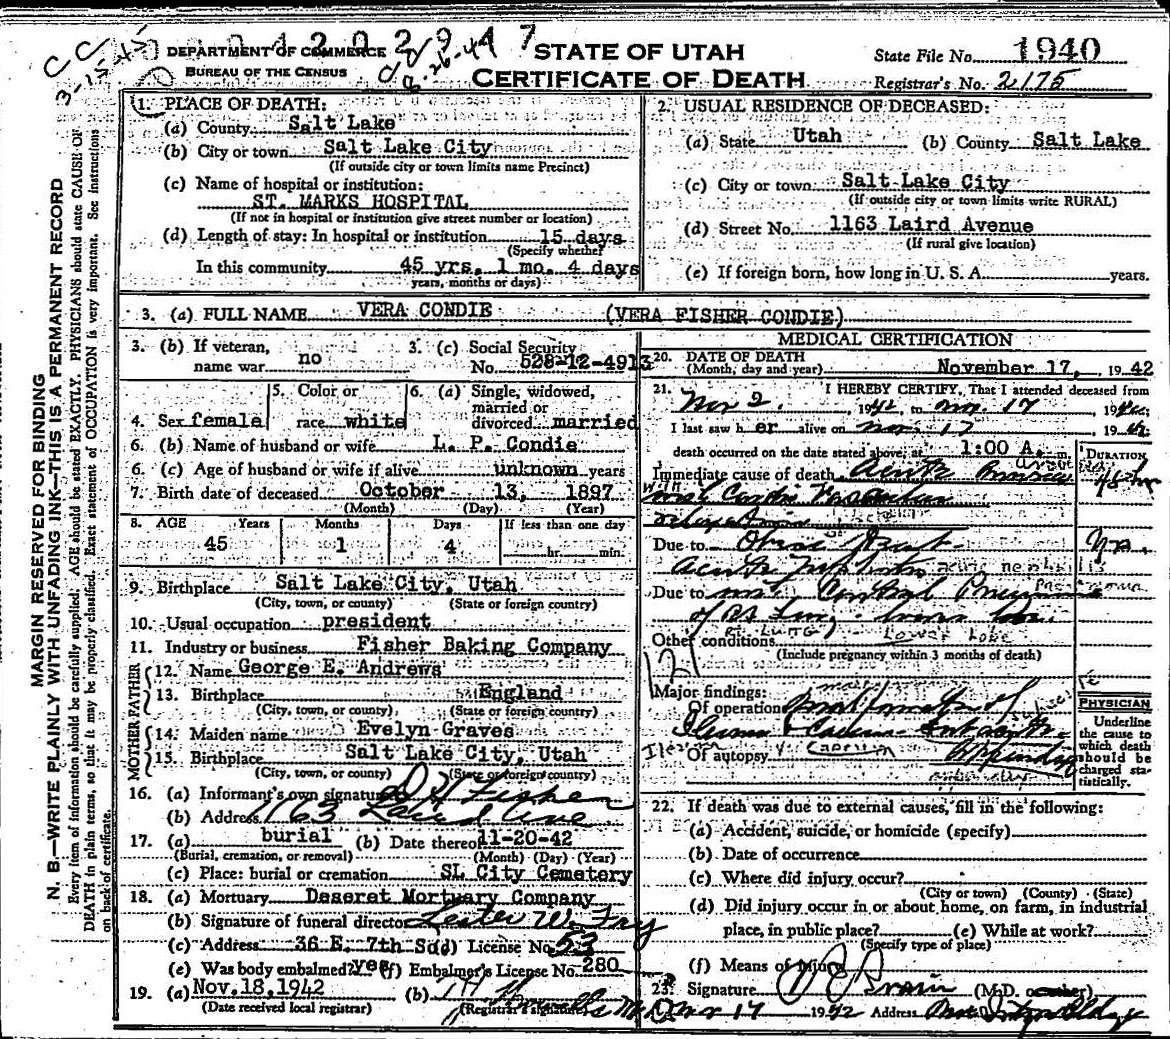 DEPARTMENT OF COMMERCE
BUREAU OF THE CENSUS
STATE OF UTAH
CERTIFICATE OF DEATH
State File No. 1940
Registrar's No. 2175
CC
3-15-45
8-26-44
MARGIN RESERVED FOR BINDING
N. B.—WRITE PLAINLY WITH UNFADING INK—THIS IS A PERMANENT RECORD
Every item of information should be carefully supplied; AGE should be stated EXACTLY. PHYSICIANS should state CAUSE OF
DEATH in plain terms, so that it may be properly classified. Exact statement of OCCUPATION is very important. See instructions
on back of certificate.
1. PLACE OF DEATH:
(a) County Salt Lake
(b) City or town Salt Lake City
(If outside city or town limits name Precinct)
(c) Name of hospital or institution:
ST. MARKS HOSPITAL
(If not in hospital or institution give street number or location)
(d) Length of stay: In hospital or institution 15 days
(Specify whether
In this community 45 yrs. 1 mo. 4 days
years, months or days)
2. USUAL RESIDENCE OF DECEASED:
(a) State Utah (b) County Salt Lake
(c) City or town Salt Lake City
(If outside city or town limits write RURAL)
(d) Street No. 1163 Laird Avenue
(If rural give location)
(e) If foreign born, how long in U. S. A. years.
3. (a) FULL NAME VERA CONDIE (VERA FISHER CONDIE)
3. (b) If veteran, name war no
3. (c) Social Security No. 528-12-4913
4. Sex female
5. Color or race white
6. (a) Single, widowed, married or divorced married
6. (b) Name of husband or wife L. P. Condie
6. (c) Age of husband or wife if alive unknown years
7. Birth date of deceased October 13, 1897
(Month) (Day) (Year)
8. AGE Years Months Days If less than one day
45 1 4 hr. min.
9. Birthplace Salt Lake City, Utah
(City, town, or county) (State or foreign country)
10. Usual occupation president
11. Industry or business Fisher Baking Company
FATHER
12. Name George E. Andrews
13. Birthplace England
(City, town, or county) (State or foreign country)
MOTHER
14. Maiden name Evelyn Graves
15. Birthplace Salt Lake City, Utah
(City, town, or county) (State or foreign country)
16. (a) Informant's own signature D H Fisher
(b) Address 1163 Laird Ave
17. (a) burial (b) Date thereof 11-20-42
(Burial, cremation, or removal) (Month) (Day) (Year)
(c) Place: burial or cremation SL City Cemetery
18. (a) Mortuary Deseret Mortuary Company
(b) Signature of funeral director Lester W. Fry
(c) Address 36 E. 7th So (d) License No. 53
(e) Was body embalmed? yes (f) Embalmer's License No. 280
19. (a) Nov. 18, 1942 (b)
(Date received local registrar) (Registrar's signature)
MEDICAL CERTIFICATION
20. DATE OF DEATH
(Month, day and year) November 17, 1942
21. I HEREBY CERTIFY, That I attended deceased from
Nov 2, 1942, to Nov. 17 1942;
I last saw h er alive on Nov 17 1942;
death occurred on the date stated above, at 1:00 A. m.
DURATION
Immediate cause of death Acute
48 hr
Due to
Due to Central Pneumonia
of Rt Lung - lower lobe
Rt LUNG - LOWER LOBE
Other conditions
(Include pregnancy within 3 months of death)
121
Major findings:
Of operation
Of autopsy
PHYSICIAN
Underline the cause to which death should be charged statistically.
22. If death was due to external causes, fill in the following:
(a) Accident, suicide, or homicide (specify)
(b) Date of occurrence
(c) Where did injury occur?
(City or town) (County) (State)
(d) Did injury occur in or about home, on farm, in industrial
place, in public place? (e) While at work?
(Specify type of place)
(f) Means of injury
23. Signature (M.D. or other)
Nov 17 1942 Address